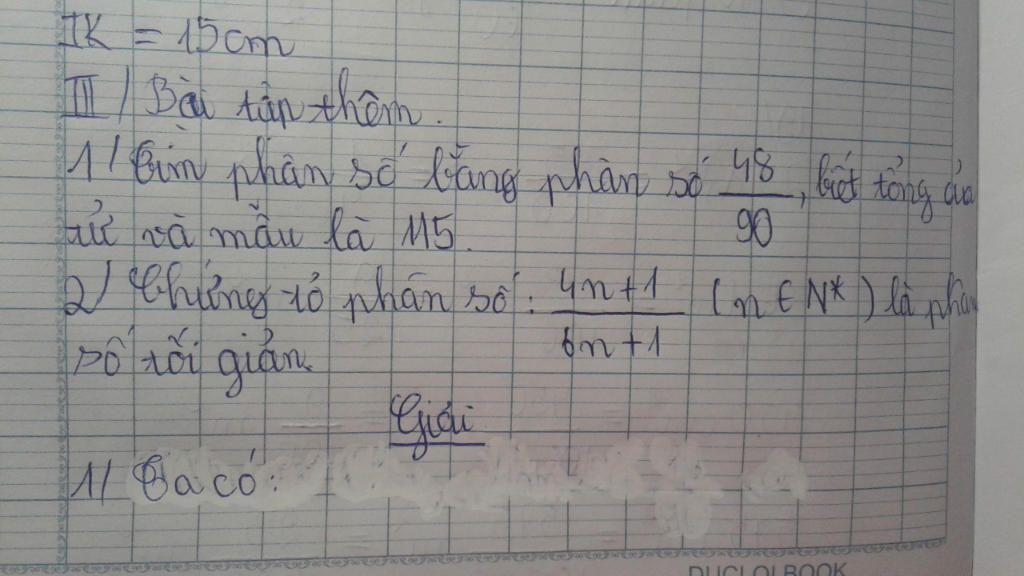 IK = 15cm
III/ Bài tập thêm.
1/ Tìm phân số bằng phân số 48/90, biết tổng của
tử và mẫu là 115.
2/ Chứng tỏ phân số: 4n+1/6n+1 (n ∈ N*) là phân
số tối giản.
Giải
1/ Ta có:
DUCLOIBOOK